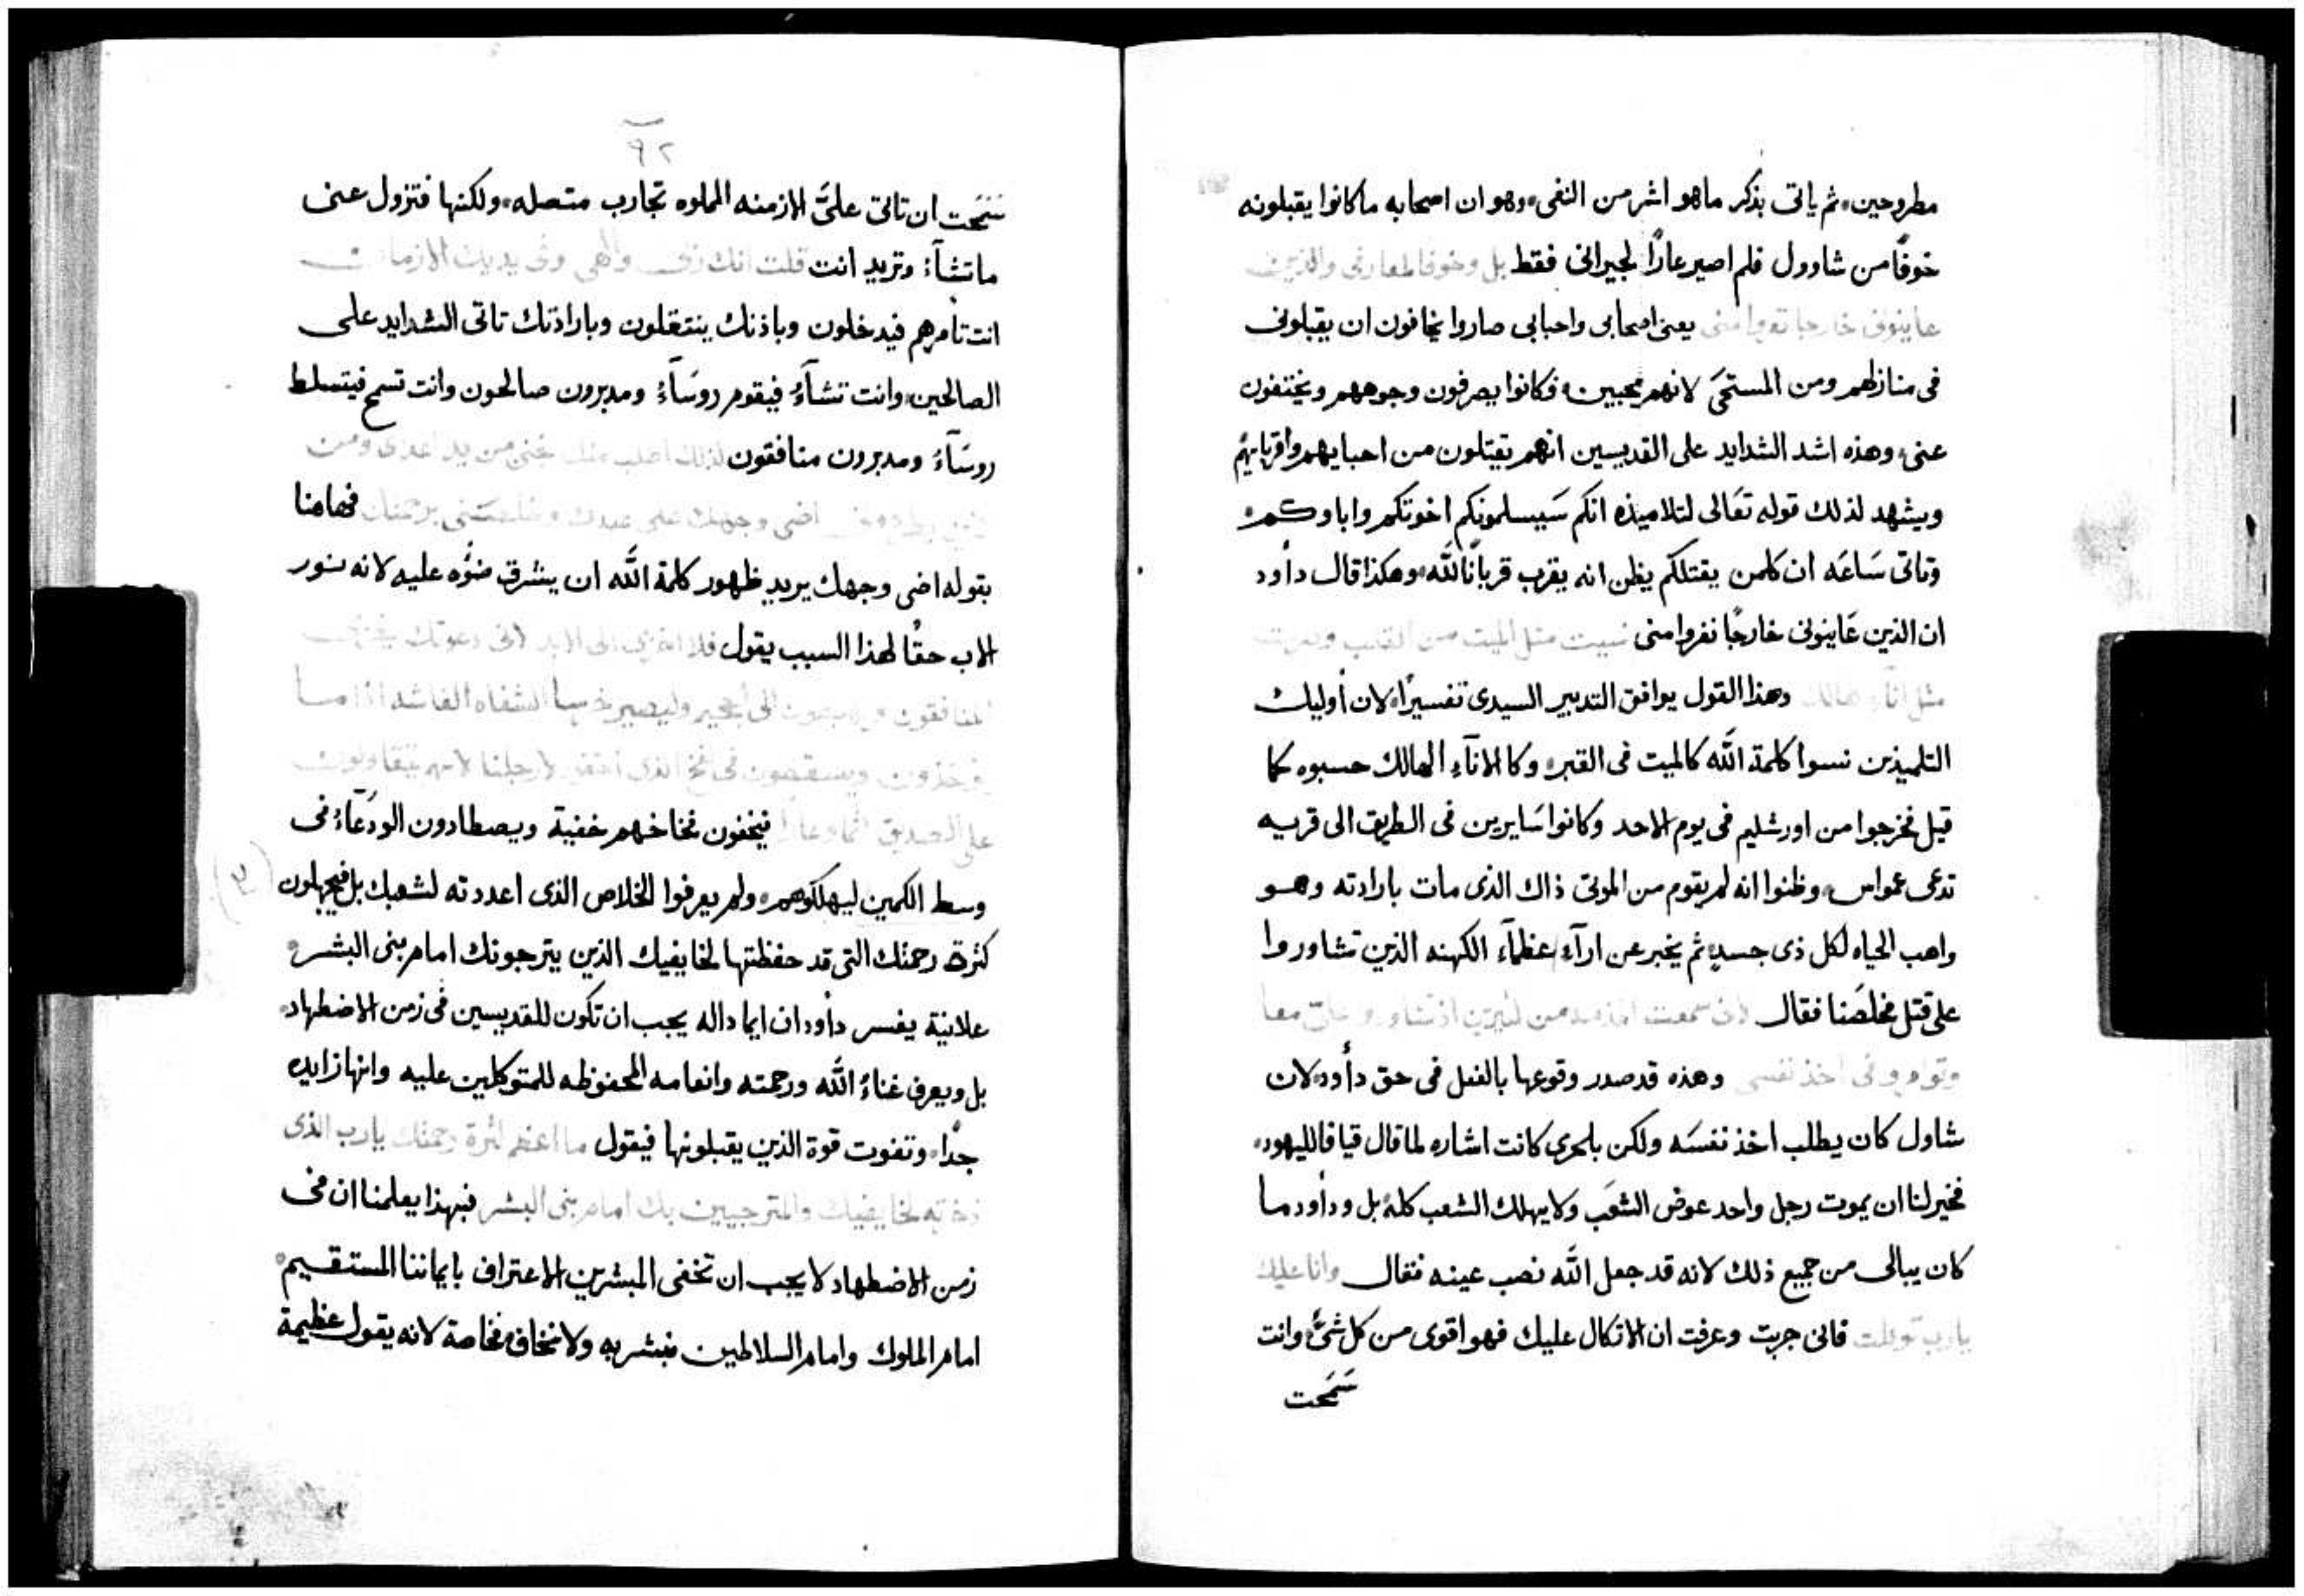 مطروحين، ثم ياتى بذكر ماهو اشر من النفى، وهو ان اصحابه ماكانوا يقبلونه
خوفًا من شاوول فلم اصير عارًا لجيرانى فقط بل وخوفًا لمعارفى والذين
عاينونى خارجا تفروا منى يعنى اصحابى واحبابى صاروا يخافون ان يقبلونى
فى منازلهم ومن المستحَى لانهم محبين، فكانوا يصرفون وجوههم ويختفون
عنى، وهذه اشد الشدايد على القديسين انهم يقتلون من احبايهم واقربايهم
ويشهد لذلك قوله تعَالى لتلاميذه انكم سَيسلمونكم اخوتكم واباوكم
وتاتى سَاعَه ان كلمن يقتلكم يظن انه يقرب قربانًا لله، وهكذا قال داود
ان الذين عَاينونى خارجًا نفروا منى نسيت مثل الميت من القلب وصرت
مثل انآء هالك وهذا القول يوافق التدبير السيدى تفسيرًا، لان أوليك
التلميذين نسوا كلمة الله كالميت فى القبر، وكالانآء الهالك حسبوه كما
قيل فخرجوا من اورشليم فى يوم الاحد وكانوا سَايرين فى الطريق الى قريه
تدعى عمواس، وظنوا انه لم يقوم من الموتى ذاك الذى مات بارادته وهو
واهب الحياه لكل ذى جسد، ثم يخبر عن ارآء عظمآء الكهنه الذين تشاوروا
على قتل مخلصَنا فقال لانى سمعت المذمه من كثيرين اذ تشاوروا علىّ معا
وتوامروا فى اخذ نفسى وهذه قد صدر وقوعها بالفعل فى حق داود، لان
شاول كان يطلب اخذ نفسَه ولكن بلحرى كانت اشاره لما قال قيافا لليهود،
فخير لنا ان يموت رجل واحد عوض الشعَب ولا يهلك الشعب كله، بل وداود ما
كان يبالى من جميع ذلك لانه قد جعل الله نصب عينه فقال وانا عليك
يارب توكلت فانى جربت وعرفت ان الاتكال عليك فهو اقوى من كل شىٍ، وانت
سَمَحت
٩٢
سَمَحت ان تاتى علىَّ الازمنه المملوه تجارب متصله، ولكنها فتزول عنى
ماتشآءُ وتريد انت قلت انك ربى والهى وفى يديك الازمان
انت تأمرهم فيدخلون وباذنك ينتقلون وبارادتك تاتى الشدايد على
الصالحين، وانت تشآءُ فيقوم روسَآءُ ومدبرون صالحون وانت تسمح فيتسلط
روسَآءُ ومدبرون منافقون لذلك اطلب منك نجنى من يد اعداى ومن
اضى وجهك على عبدك وخلصنى برحمتك فهاهنا
بقوله اضى وجهك يريد ظهور كلمة الله ان يشرق ضوُه عليه لانه نور
الاب حقًا لهذا السبب يقول فلا اخزى الى الابد لانى دعوتك
المنافقون الى الجحيم ولتصير خرسا الشفاه الغاشه اذا ما
ويسقطون فى الفخ الذى لارجلنا لانهم يتقاولون
على الصديق اثما وعارًا فيخفون فخاخهم خفية ويصطادون الودَعَآءُ فى
وسط الكمين ليهلكوهم، ولم يعرفوا الخلاص الذى اعددته لشعبك بل فيجهلون
كثرة رحمتك التى قد حفظتها لخايفيك الذين يترجونك امام بنى البشر
علانية يفسر داود ان ايما داله يجب ان تكون للقديسين فى زمن الاضطهاد
بل ويعرف غناءُ الله ورحمته وانعامه المحفوظه للمتوكلين عليه وانها زايده
جدًا، وتفوت قوة الذين يقبلونها فيقول ما اعظم كثرة رحمتك يارب الذى
ذخرته لخايفيك والمترجيين بك امام بنى البشر فبهذا يعلمنا ان فى
زمن الاضطهاد لا يجب ان تخفى المبشرين الاعتراف بايماننا المستقيم
امام الملوك وامام السلاطين، فبشر به ولا نخاف، فخاصة لانه يقول عظيمة